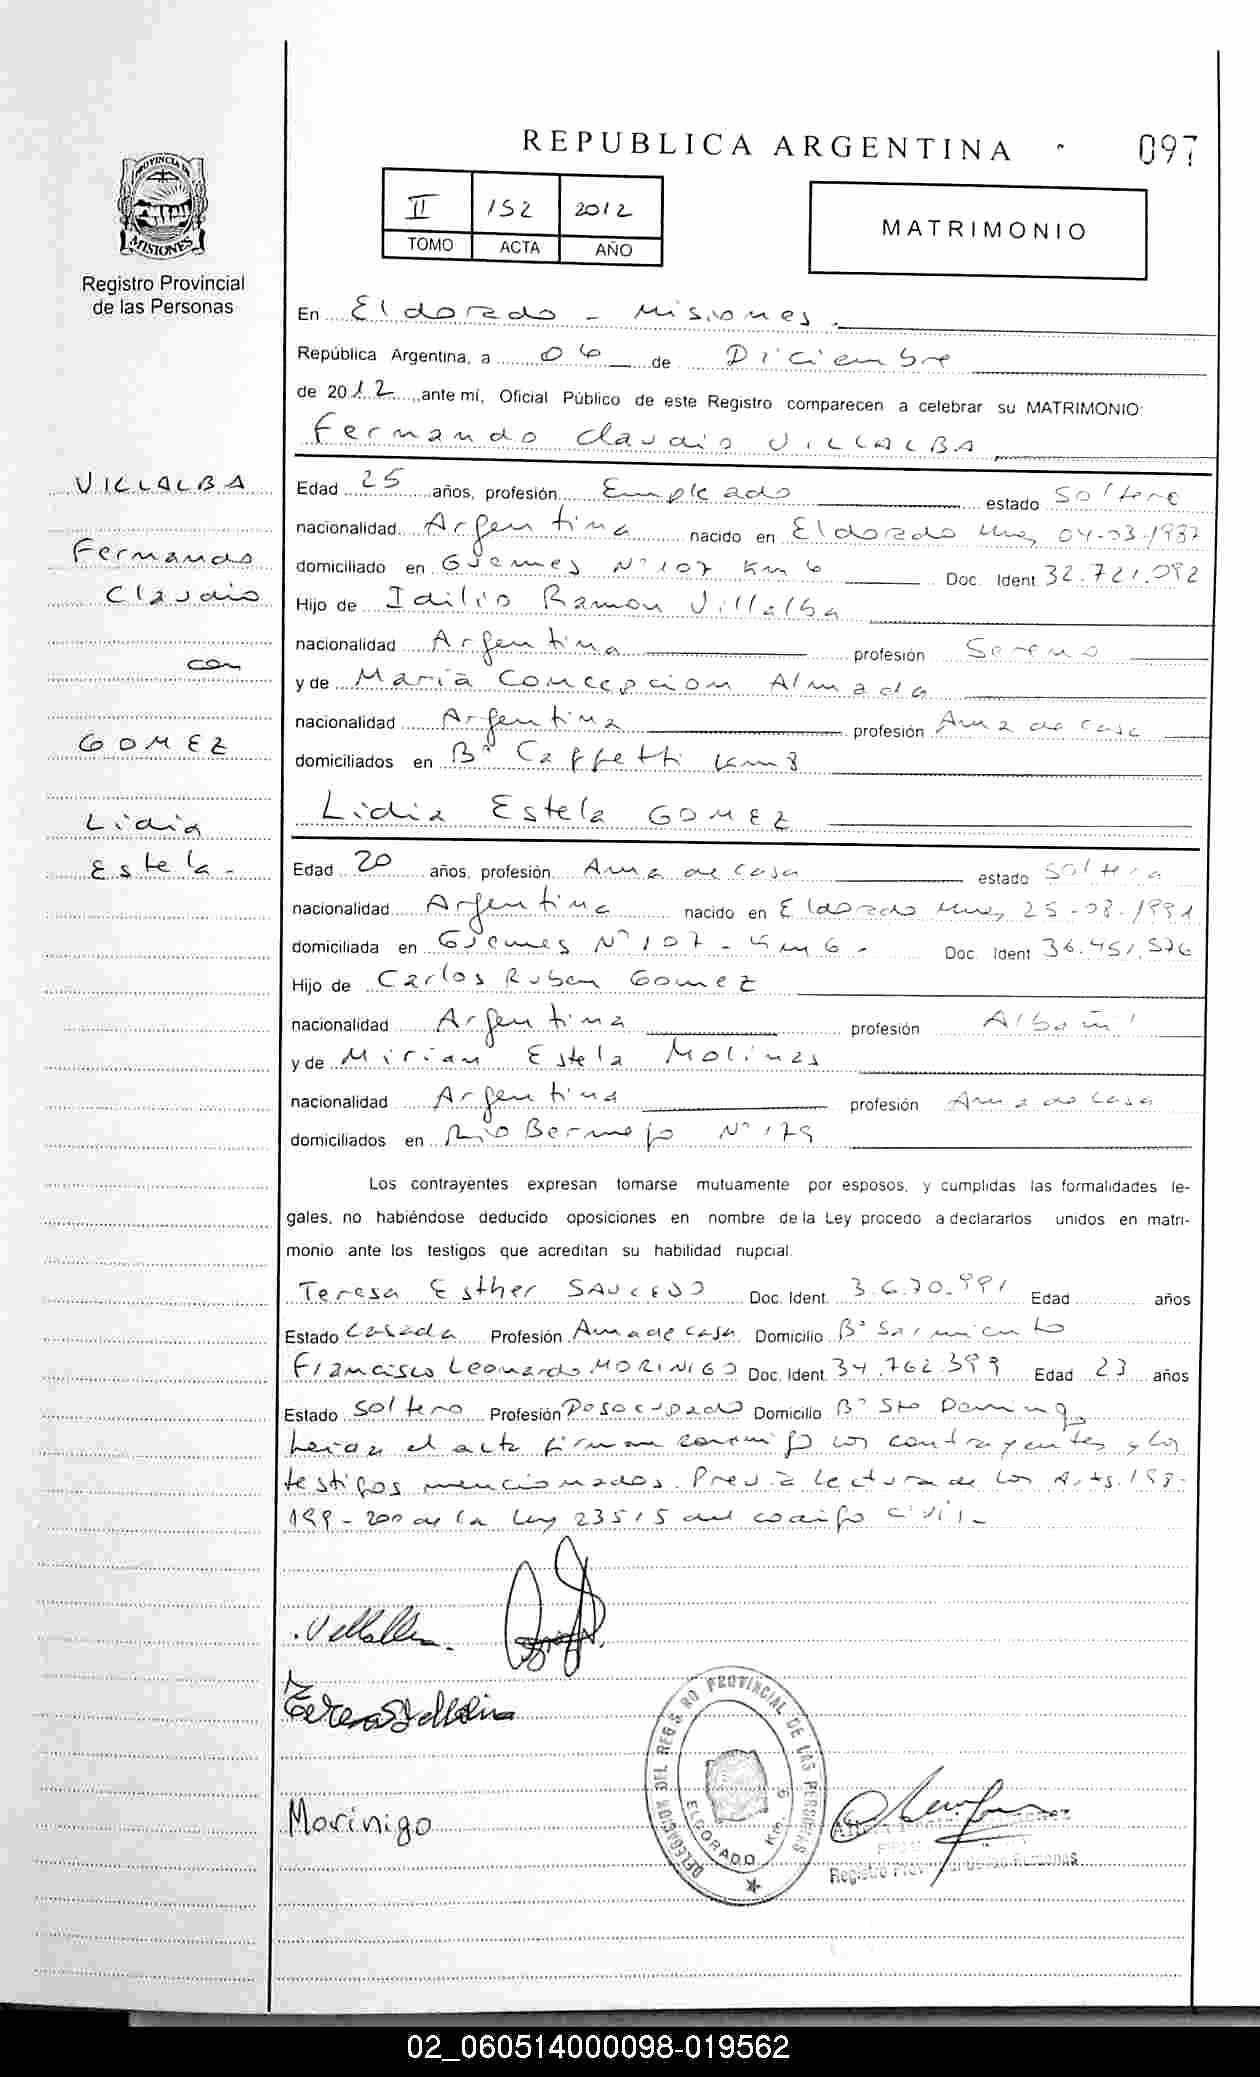 REPUBLICA ARGENTINA
097
II 152 2012
TOMO ACTA AÑO
MATRIMONIO
PROVINCIA DE
MISIONES
Registro Provincial
de las Personas
En Eldorado - Misiones.
República Argentina, a 06 de Diciembre
de 2012, ante mí, Oficial Público de este Registro comparecen a celebrar su MATRIMONIO:
Fernando Claudio VILLALBA
VILLALBA
Fernando
Claudio
con
GOMEZ
Lidia
Estela.
Edad 25 años, profesión Empleado estado Soltero
nacionalidad Argentina nacido en Eldorado Mnes 04-03-1987
domiciliado en Güemes N° 107 Km 6 Doc. Ident. 32.721.092
Hijo de Idilio Ramon Villalba
nacionalidad Argentina profesión Sereno
y de Maria Concepcion Almada
nacionalidad Argentina profesión Ama de casa
domiciliados en B° Caffetti Km 8
Lidia Estela GOMEZ
Edad 20 años, profesión Ama de casa estado Soltera
nacionalidad Argentina nacido en Eldorado Mnes 25-08-1991
domiciliada en Güemes N° 107 - Km 6 - Doc. Ident. 36.451.576
Hijo de Carlos Ruben Gomez
nacionalidad Argentina profesión Albañil
y de Mirian Estela Molinas
nacionalidad Argentina profesión Ama de casa
domiciliados en Rio Bermejo N° 179
Los contrayentes expresan tomarse mutuamente por esposos, y cumplidas las formalidades le-
gales, no habiéndose deducido oposiciones en nombre de la Ley procedo a declararlos unidos en matri-
monio ante los testigos que acreditan su habilidad nupcial.
Teresa Esther SAUCEDO Doc. Ident. 3.670.991 Edad años
Estado Casada Profesión Ama de casa Domicilio B° Sarmiento
Francisco Leonardo MORINIGO Doc. Ident. 34.762.399 Edad 23 años
Estado Soltero Profesión Desocupado Domicilio B° Sto Domingo
Leida el acta firman conmigo los contrayentes y los
testigos mencionados. Previa lectura de los Arts. 198-
199-200 de la Ley 23515 del codigo civil.-
Villalba.
Morinigo
DELEGACION DEL REGISTRO PROVINCIAL DE LAS PERSONAS
ELDORADO
Registro Provincial de las Personas
02_060514000098-019562